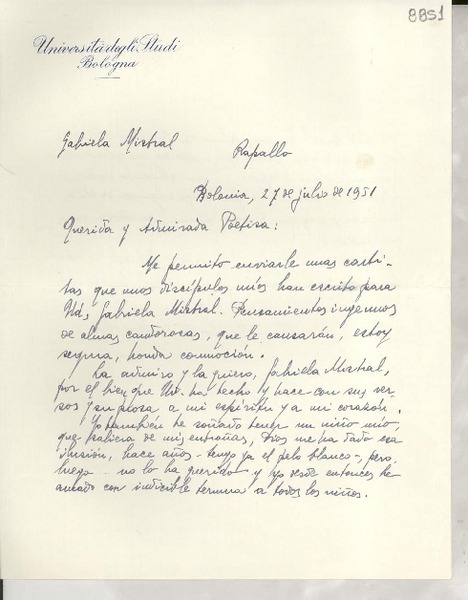 8851
Università degli Studi
Bologna
Gabriela Mistral
Rapallo
Bolonia, 27 de julio de 1951
Querida y Admirada Poetisa:
Me permito enviarle unas carti-
tas que unos discípulos míos han escrito para
Ud, Gabriela Mistral. Pensamientos ingenuos
de almas candorosas, que le causarán, estoy
segura, honda conmoción.
La admiro y la quiero, Gabriela Mistral,
por el bien que Ud. ha hecho y hace con sus ver-
sos y su prosa a mi espíritu y a mi corazón.
Yo también he soñado tener un niño mío,
que saliera de mis entrañas, Dios me ha dado esa
ilusión, hace años - tengo ya el pelo blanco -, pero
luego no lo ha querido y yo desde entonces he
amado con indecible ternura a todos los niños.